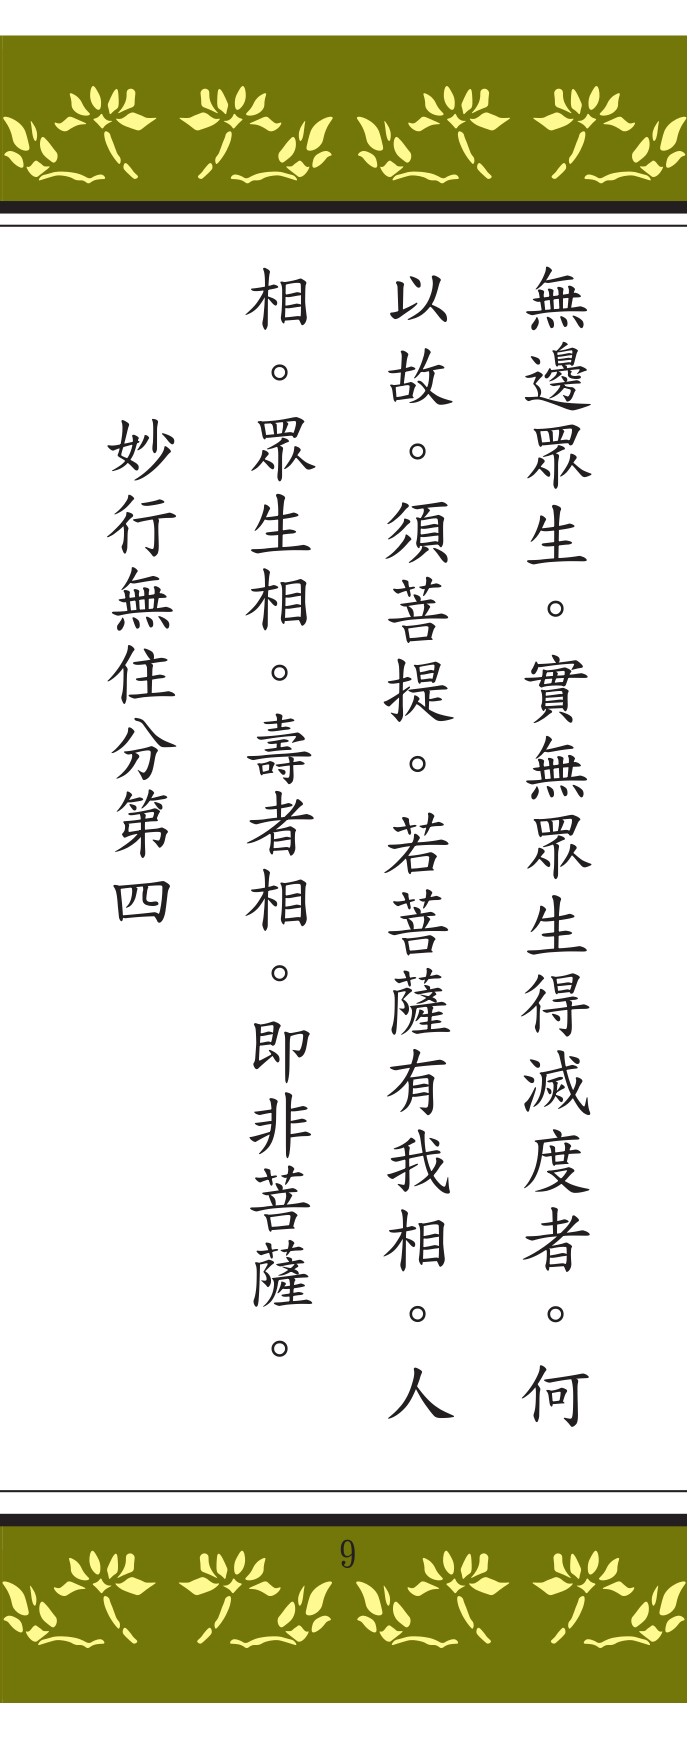 無邊眾生。實無眾生得滅度者。何
以故。須菩提。若菩薩有我相。人
相。眾生相。壽者相。即非菩薩。
妙行無住分第四
9